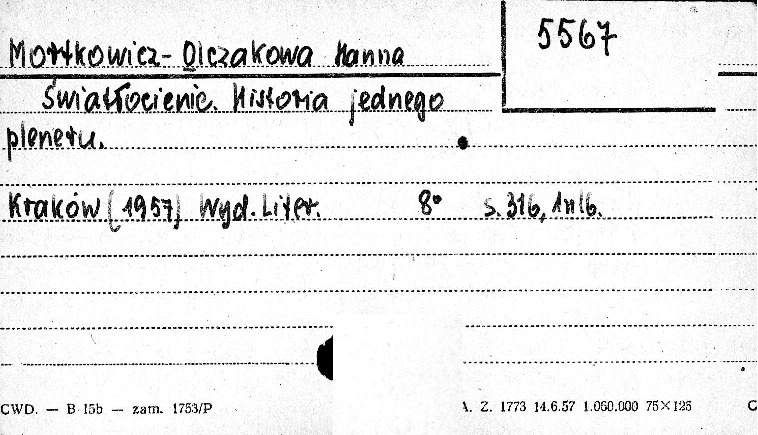 5567
Mortkowicz-Olczakowa Hanna
Światłocienie. Historia jednego
pleneru.
Kraków (1957) Wyd. Liter. 8° s. 316, 1nlb.
CWD. — B-15b — zam. 1753/P
A. Z. 1773 14.6.57 1.060.000 75×125
C